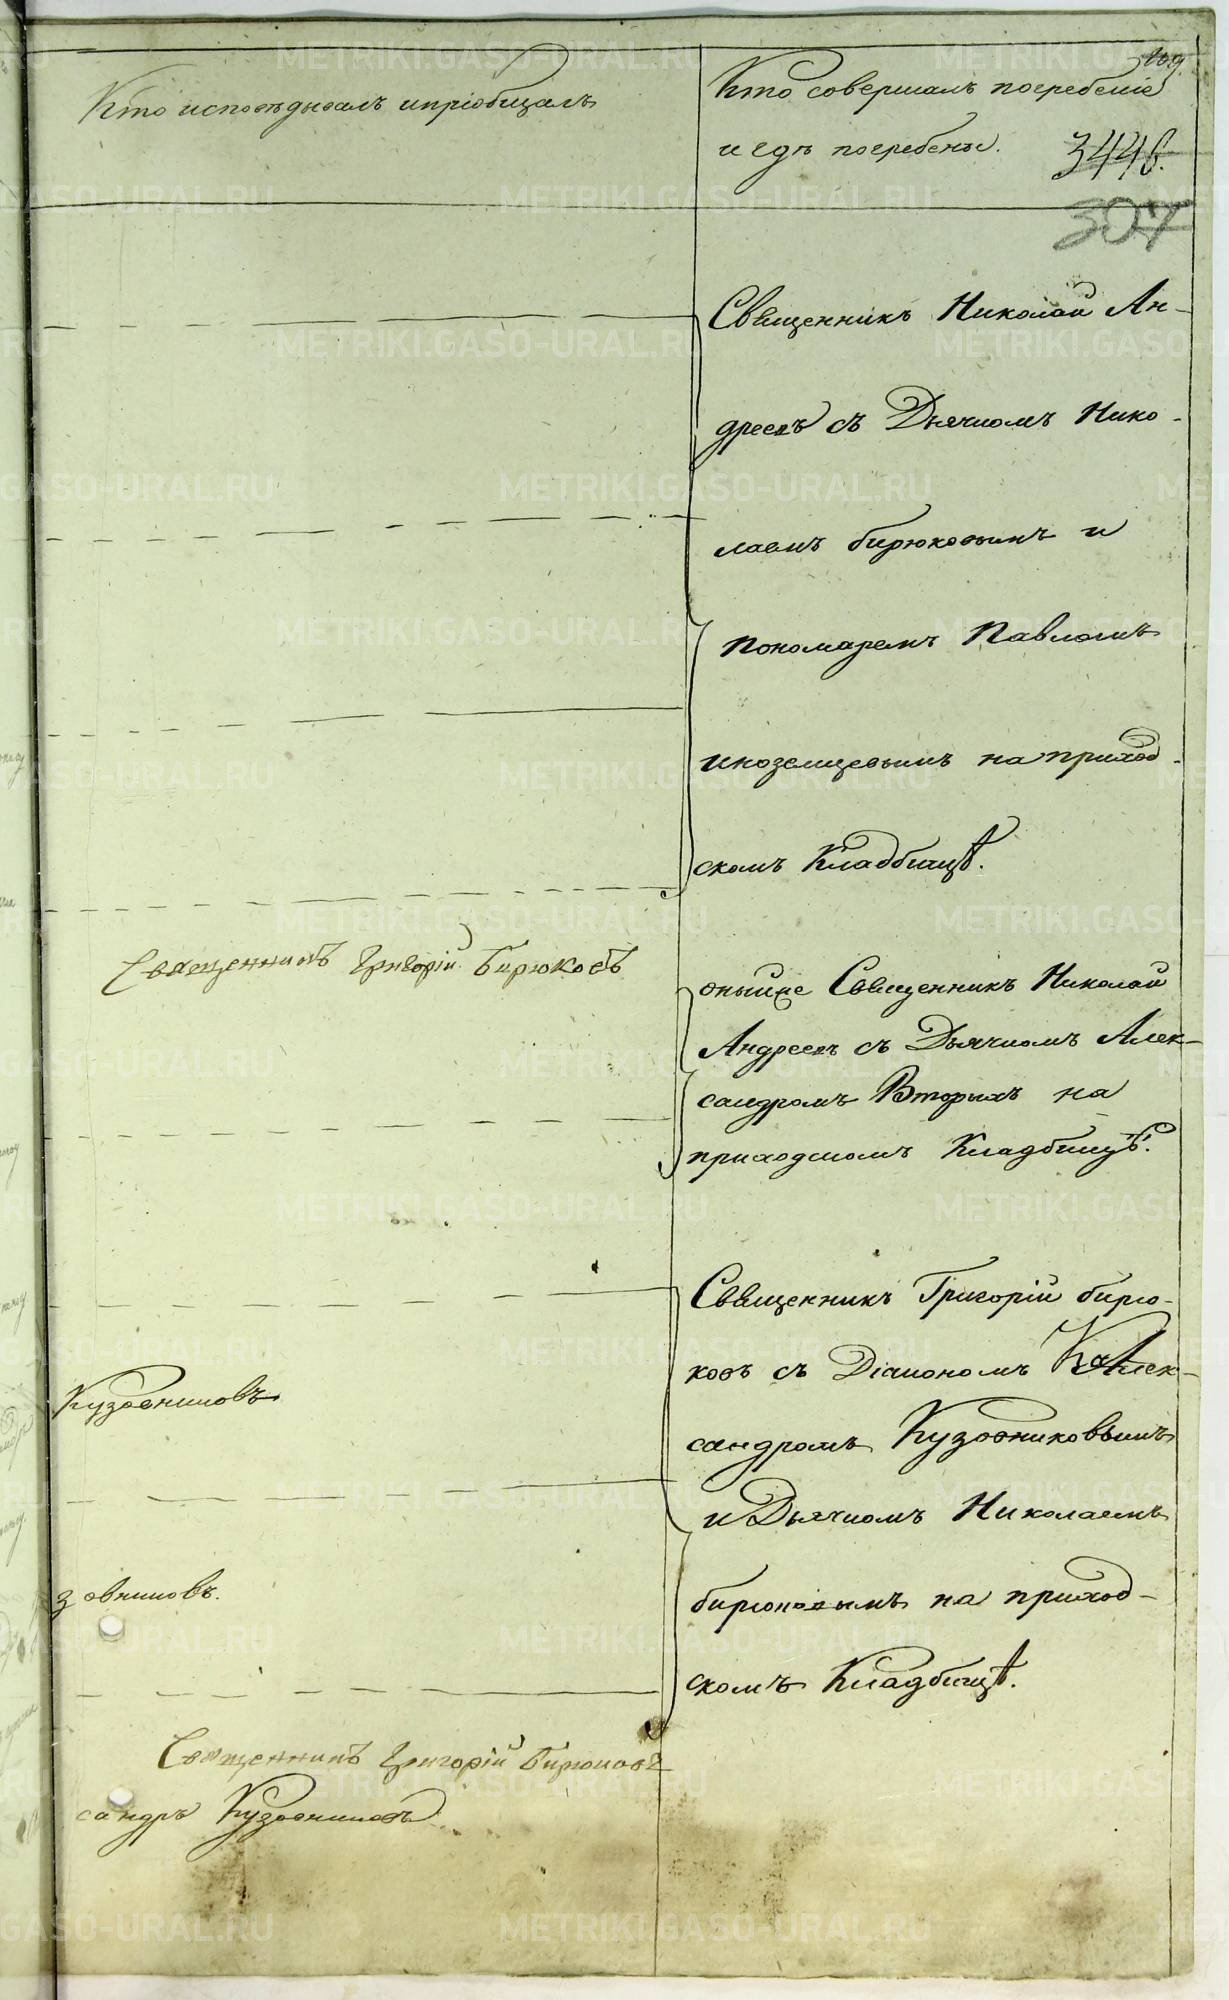 109
Кто исповѣдывалъ и пріобщалъ
Кто совершалъ погребеніе
и гдѣ погребены.
344 б.
307
Священникъ Николай Ан-
дреевъ съ Дьячкомъ Нико-
лаемъ бирюковымъ и
пономаремъ Павломъ
иноземцевымъ на приход-
скомъ Кладбищѣ.
Священникъ Григорій Бирюковъ
оныйже Священникъ Николай
Андреевъ съ Дьячкомъ Алек-
сандромъ Вторыхъ на
приходскомъ Кладбищѣ.
Священникъ Григорій бирю-
ковъ съ Діакономъ Алек-
Кузовниковъ
сандромъ Кузовниковымъ
и Дьячкомъ Николаемъ
зовниковъ.
бирюковымъ на приход-
скомъ Кладбищѣ.
Священникъ Григорій Бирюковъ
сандръ Кузовниковъ
METRIKI.GASO-URAL.RU